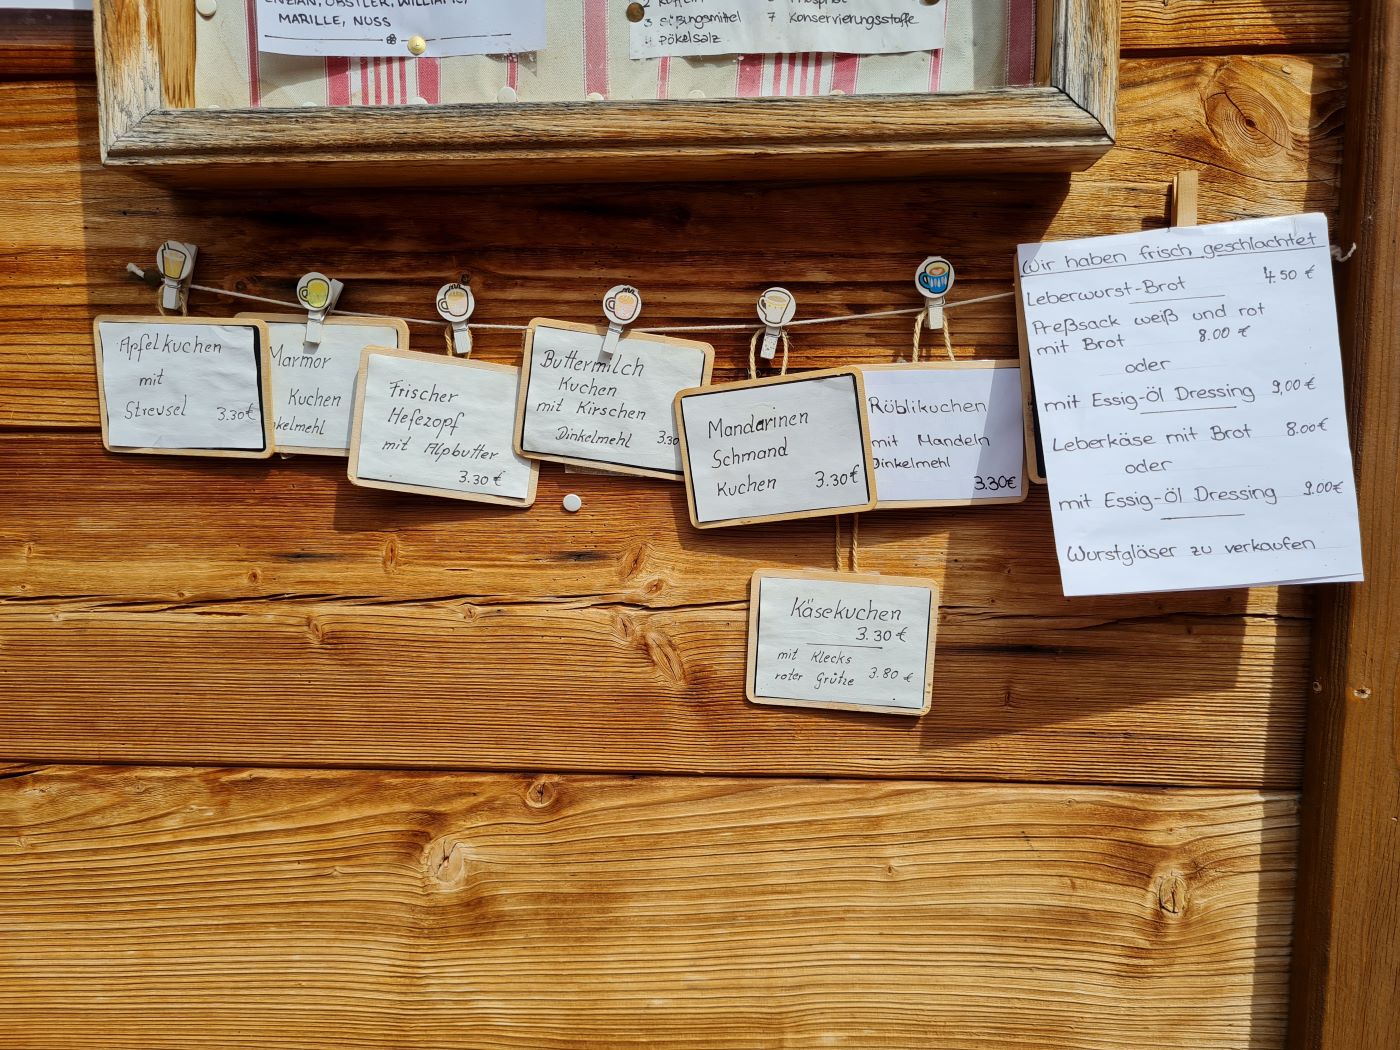 MARILLE, NUSS
3 Süßungsmittel
4 Pökelsalz
7 Konservierungsstoffe
Apfelkuchen
mit
Streusel 3.30€
Marmor
Kuchen
Frischer
Hefezopf
mit Alpbutter
3.30 €
Buttermilch
Kuchen
mit Kirschen
Dinkelmehl 3.30
Mandarinen
Schmand
Kuchen 3.30€
Rüblikuchen
mit Mandeln
Dinkelmehl
3.30€
Käsekuchen
3.30 €
mit Klecks
roter Grütze 3.80 €
Wir haben frisch geschlachtet
Leberwurst-Brot 4.50 €
Preßsack weiß und rot
mit Brot 8.00 €
oder
mit Essig-Öl Dressing 9,00 €
Leberkäse mit Brot 8.00€
oder
mit Essig-Öl Dressing 9.00€
Wurstgläser zu verkaufen